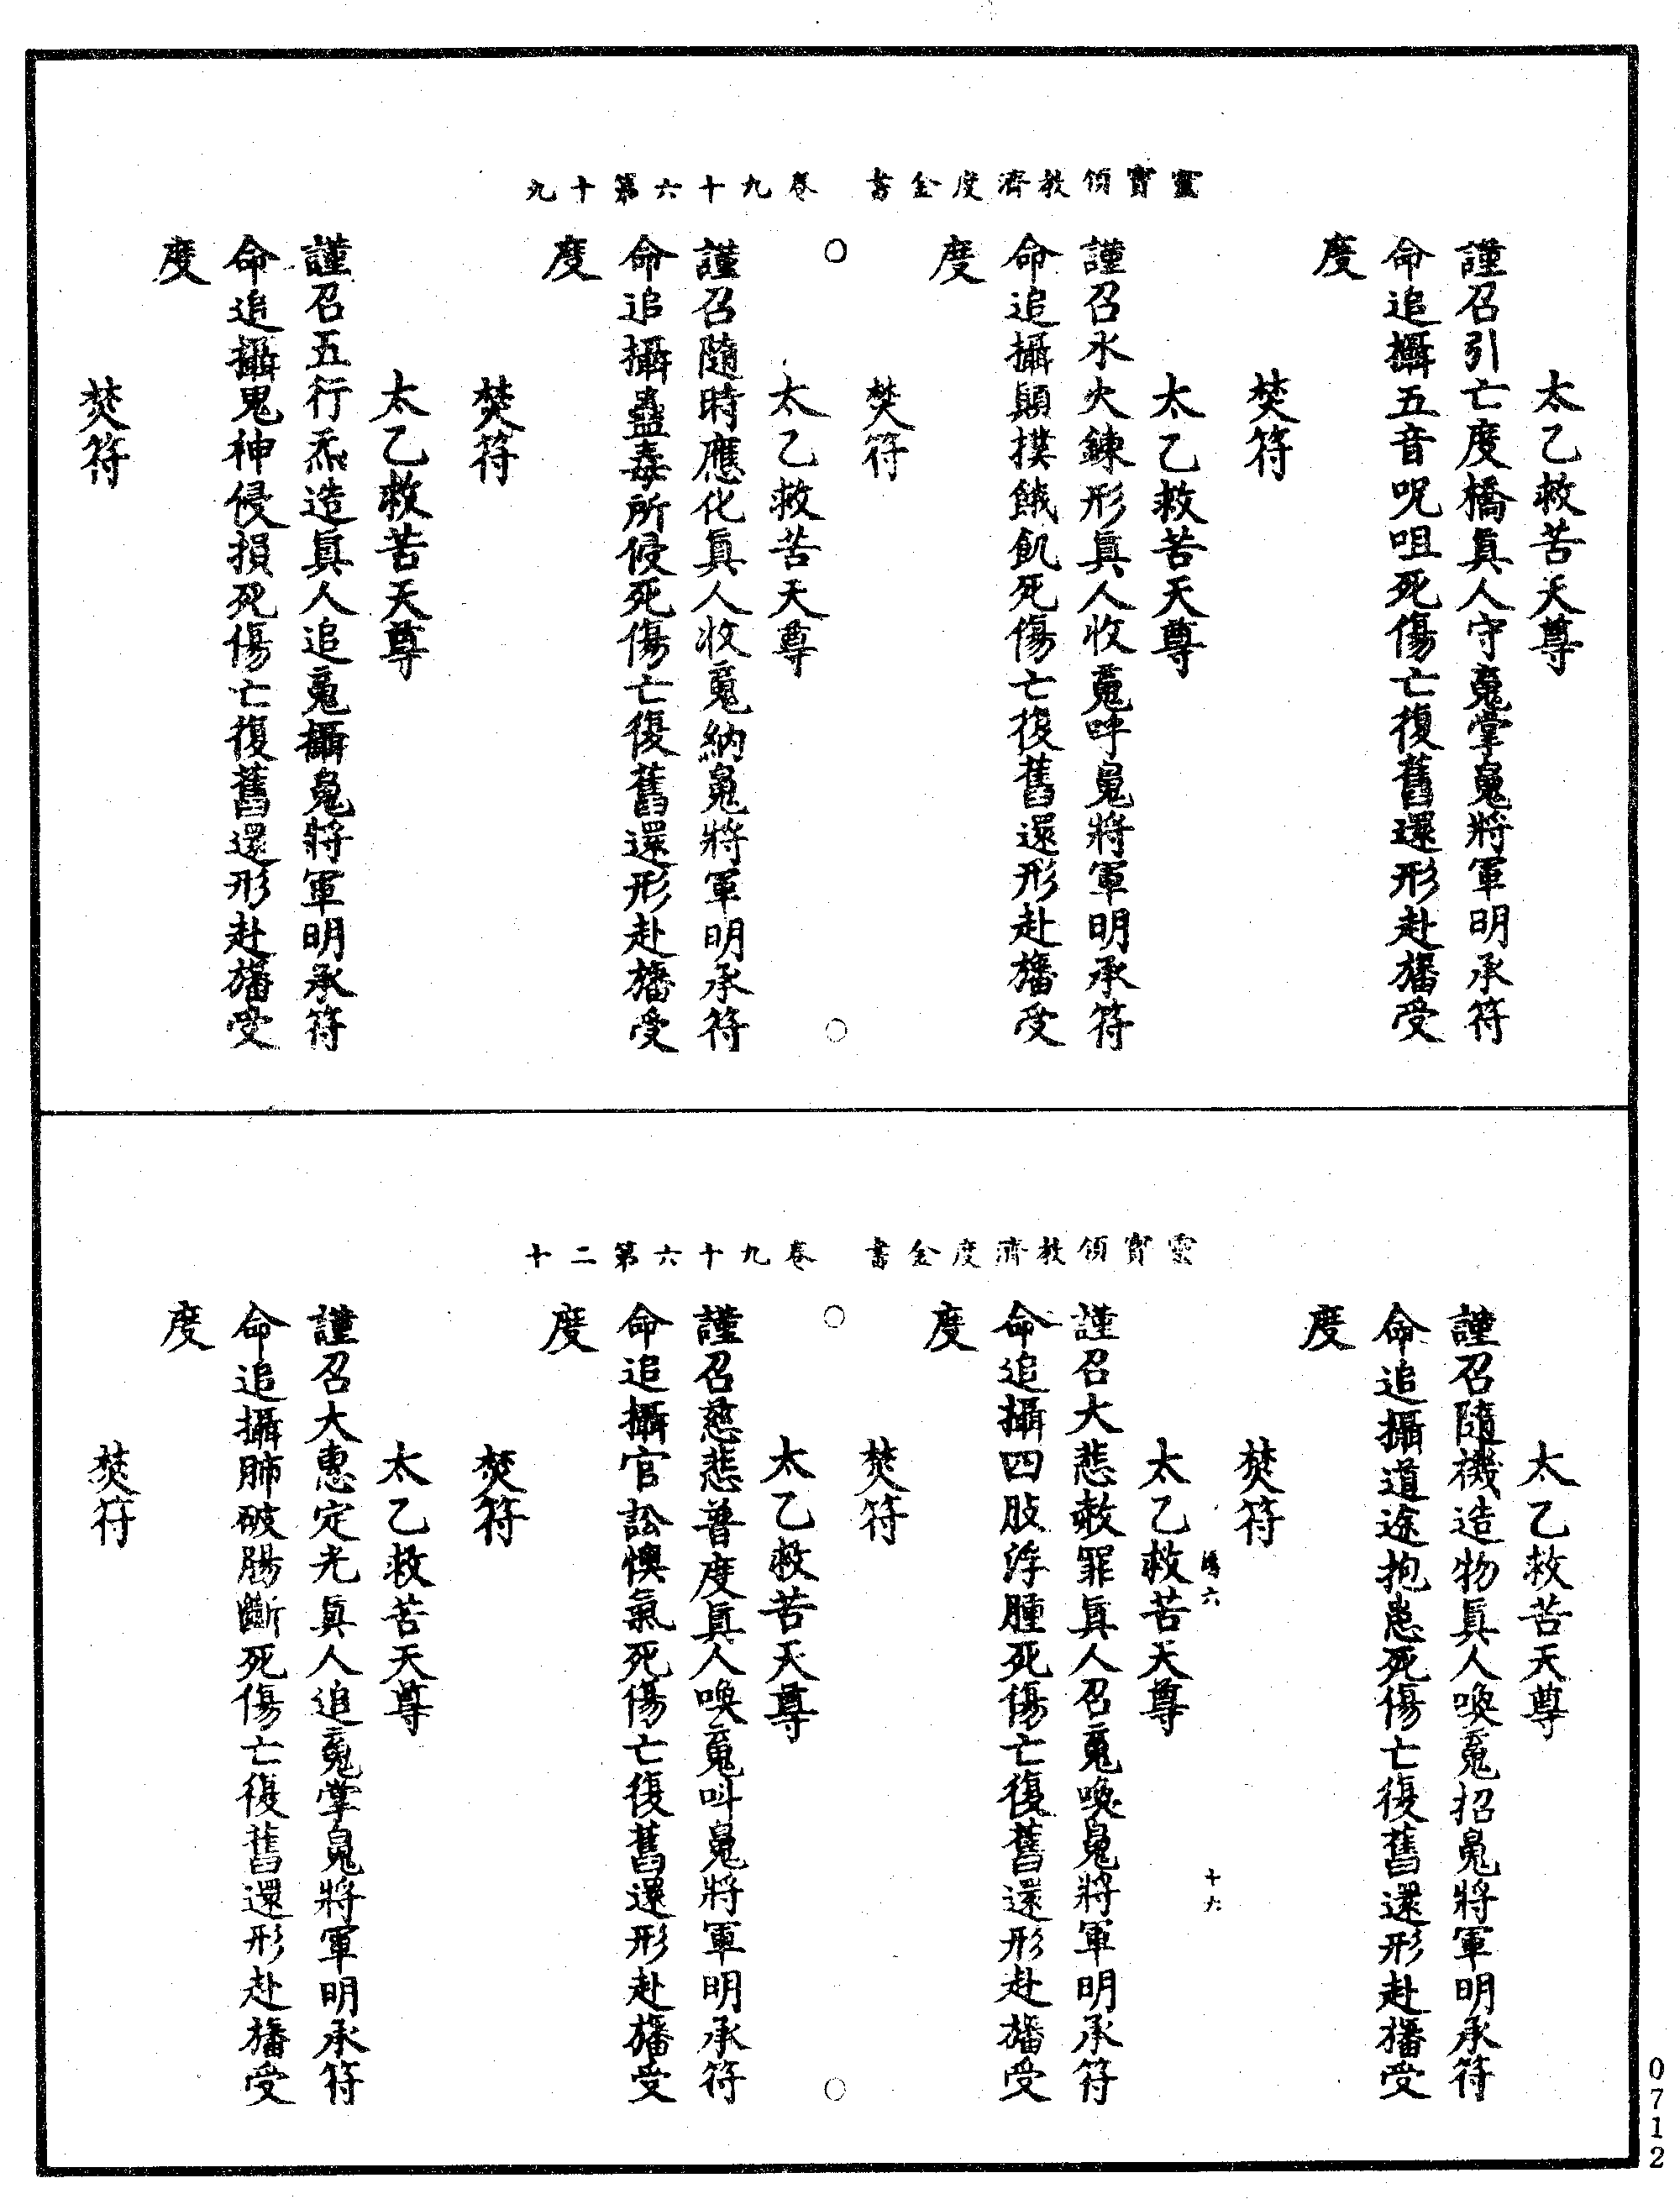 靈寶領教濟度金書　卷九十六第十九
太乙救苦天尊
謹召引亡度橋真人守䰟掌䰟將軍明承符
命追攝五音呪咀死傷亡復舊還形赴旛受
度
焚符
太乙救苦天尊
謹召水火鍊形真人收䰟呼䰟將軍明承符
命追攝顛撲餓飢死傷亡復舊還形赴旛受
度
焚符
太乙救苦天尊
謹召隨時應化真人收䰟納䰟將軍明承符
命追攝蠱毒所侵死傷亡復舊還形赴旛受
度
焚符
太乙救苦天尊
謹召五行炁造真人追䰟攝䰟將軍明承符
命追攝鬼神侵損死傷亡復舊還形赴旛受
度
焚符
靈寶領教濟度金書　卷九十六第二十
太乙救苦天尊
謹召隨機造物真人喚䰟招䰟將軍明承符
命追攝道途抱患死傷亡復舊還形赴旛受
度
焚符
六　十六
太乙救苦天尊
謹召大悲赦罪真人召䰟喚䰟將軍明承符
命追攝四肢浮腫死傷亡復舊還形赴旛受
度
焚符
太乙救苦天尊
謹召慈悲普度真人喚䰟叫䰟將軍明承符
命追攝官訟懊氣死傷亡復舊還形赴旛受
度
焚符
太乙救苦天尊
謹召大惠定光真人追䰟掌䰟將軍明承符
命追攝肺破腸斷死傷亡復舊還形赴旛受
度
焚符
0712